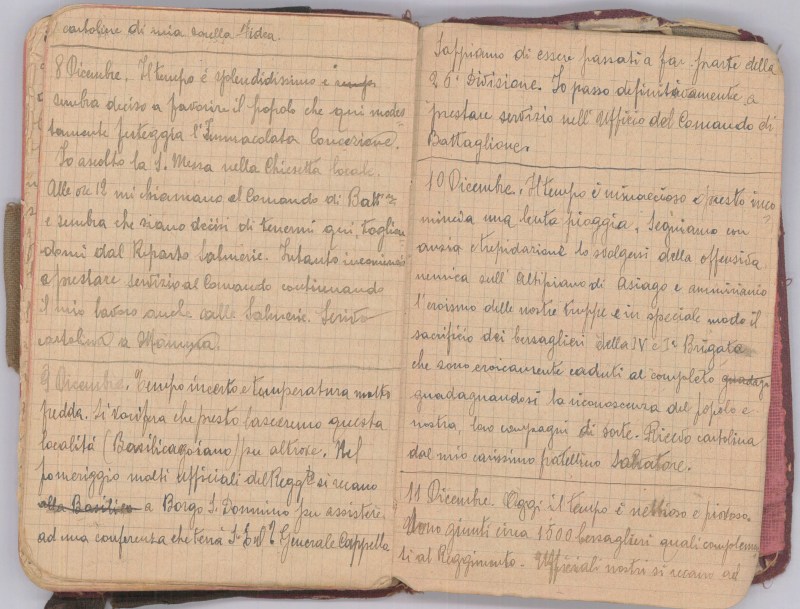 cartoline di mia sorella Midea.
8 Dicembre. Il tempo é splendidissimo e
sembra deciso a favorire il popolo che qui modes-
tamente festeggia l'Immacolata Concezione.
Io ascolto la S. Messa nella Chiesetta locale.
Alle ore 12 mi chiamano al Comando di Batt.ne
e sembra che siano decisi di tenermi qui, toglien-
domi dal Reparto Salmerie. Intanto incomincio
a prestare servizio al Comando continuando
il mio lavoro anche alle Salmerie. Scrivo
cartolina a Mamma.
9 Dicembre. Tempo incerto e temperatura molto
fredda. Si vocifera che presto lasceremo questa
località (Basilicagoiano) per altrove. Nel
pomeriggio molti ufficiali del Regg.to si recano
alla Basilica a Borgo S. Donnino per assistere
ad una conferenza che terrà S. E. il Generale Cappello
Sappiamo di essere passati a far parte della
26a Divisione. Io passo definitivamente a
prestare servizio nell'Ufficio del Comando di
Battaglione.
10 Dicembre. Il tempo é minaccioso e presto inco-
mincia una lenta pioggia. Seguiamo con
ansia e trepidazione lo svolgersi della offensiva
nemica sull'Altipiano di Asiago e ammiriamo
l'eroismo delle nostre truppe e in speciale modo il
sacrificio dei bersaglieri della IV e Ia Brigata
che sono eroicamente caduti al completo guadag
guadagnandosi la riconoscenza del popolo e
nostra, loro compagni di sorte. Ricevo cartolina
dal mio carissimo fratellino Salvatore.
11 Dicembre. Oggi il tempo é nebbioso e piovoso.
Sono giunti circa 1500 bersaglieri quali complemen-
ti al Reggimento. Ufficiali nostri si recano ad